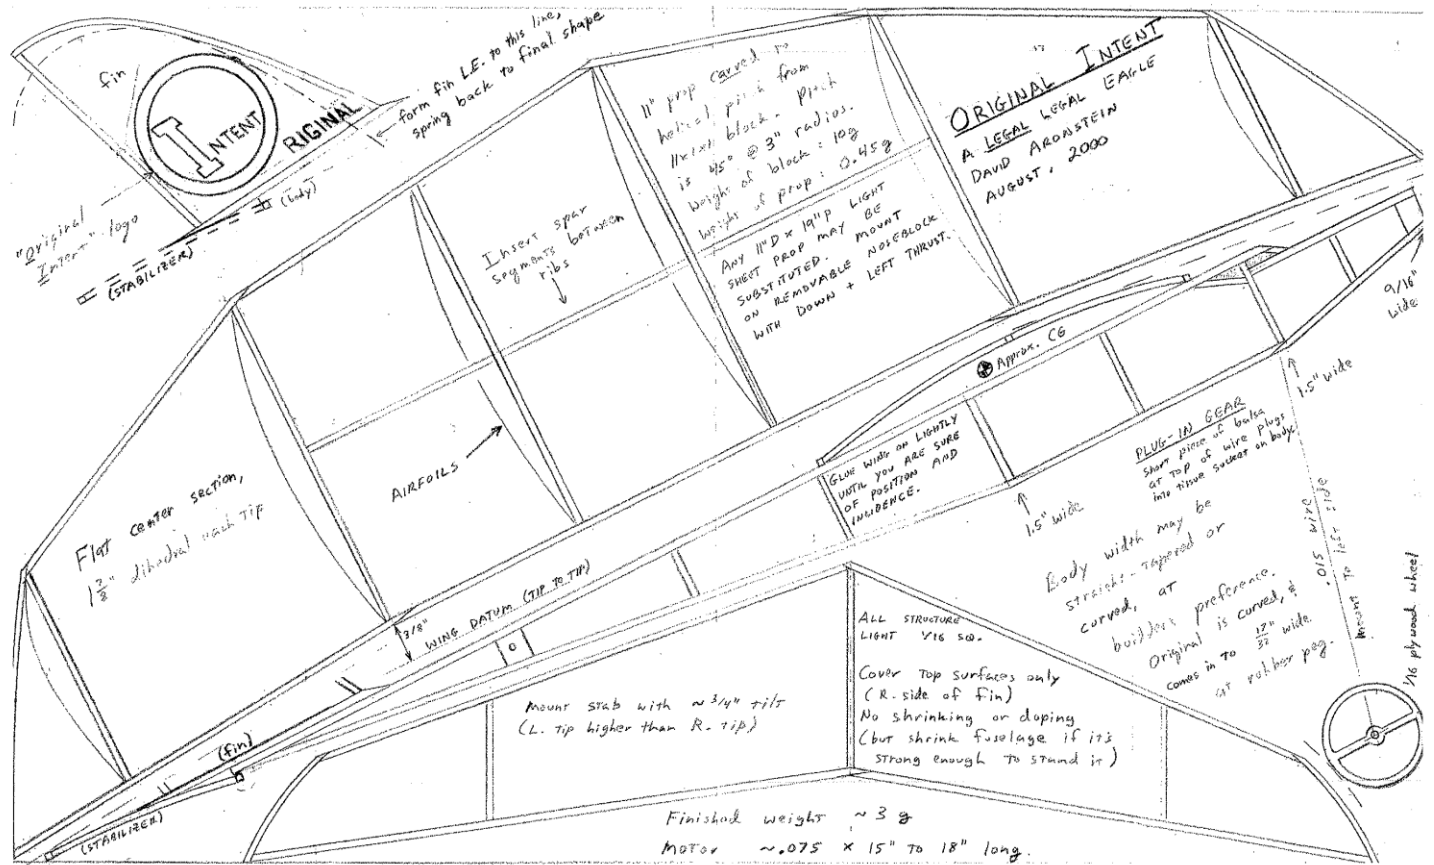 fin
INTENT
RIGINAL
form fin L.E. to this line,
spring back to final shape
"Original
Intent" logo
(body)
(STABILIZER)
11" prop carved to
helical pitch from
11x1x1 block. Pitch
is 45° @ 3" radius.
Weight of block: 10g
Weight of prop: 0.45g
ANY 11"D x 19"P LIGHT
SHEET PROP MAY BE
SUBSTITUTED. MOUNT
ON REMOVABLE NOSEBLOCK
WITH DOWN + LEFT THRUST.
ORIGINAL INTENT
A LEGAL LEGAL EAGLE
DAVID ARONSTEIN
AUGUST, 2000
Insert spar
segments between
ribs
AIRFOILS
Flat center section,
dihedral each tip
9/16"
wide
Approx. CG
1.5" wide
GLUE WING ON LIGHTLY
UNTIL YOU ARE SURE
OF POSITION AND
INCIDENCE.
1.5" wide
PLUG-IN GEAR
Short piece of balsa
at top of wire plugs
into tissue socket on body.
.015 wire
1/16 plywood wheel
Body width may be
straight-tapered or
curved, at
builder's preference.
Original is curved, &
comes in to 17/32" wide
at rubber peg.
3/8"
WING DATUM (TIP TO TIP)
ALL STRUCTURE
LIGHT 1/16 SQ.
Cover top surfaces only
(R. side of fin)
No shrinking or doping
(but shrink fuselage if it's
strong enough to stand it)
Mount stab with ~ 3/4" tilt
(L. tip higher than R. tip)
(fin)
(STABILIZER)
Finished weight ~ 3 g
Motor ~.075 x 15" to 18" long.